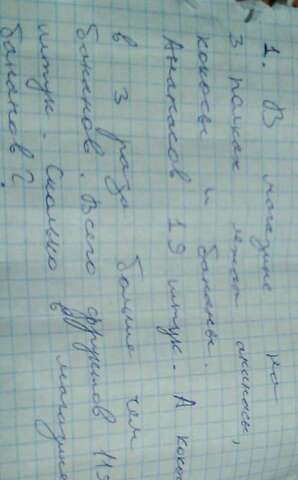 1. В магазине на
3 полках лежат ананасы,
кокосы и бананы.
Ананасов 19 штук. А коко
в 3 раза больше чем
бананов. Всего фруктов 115
штук. Сколько в магазине
бананов?